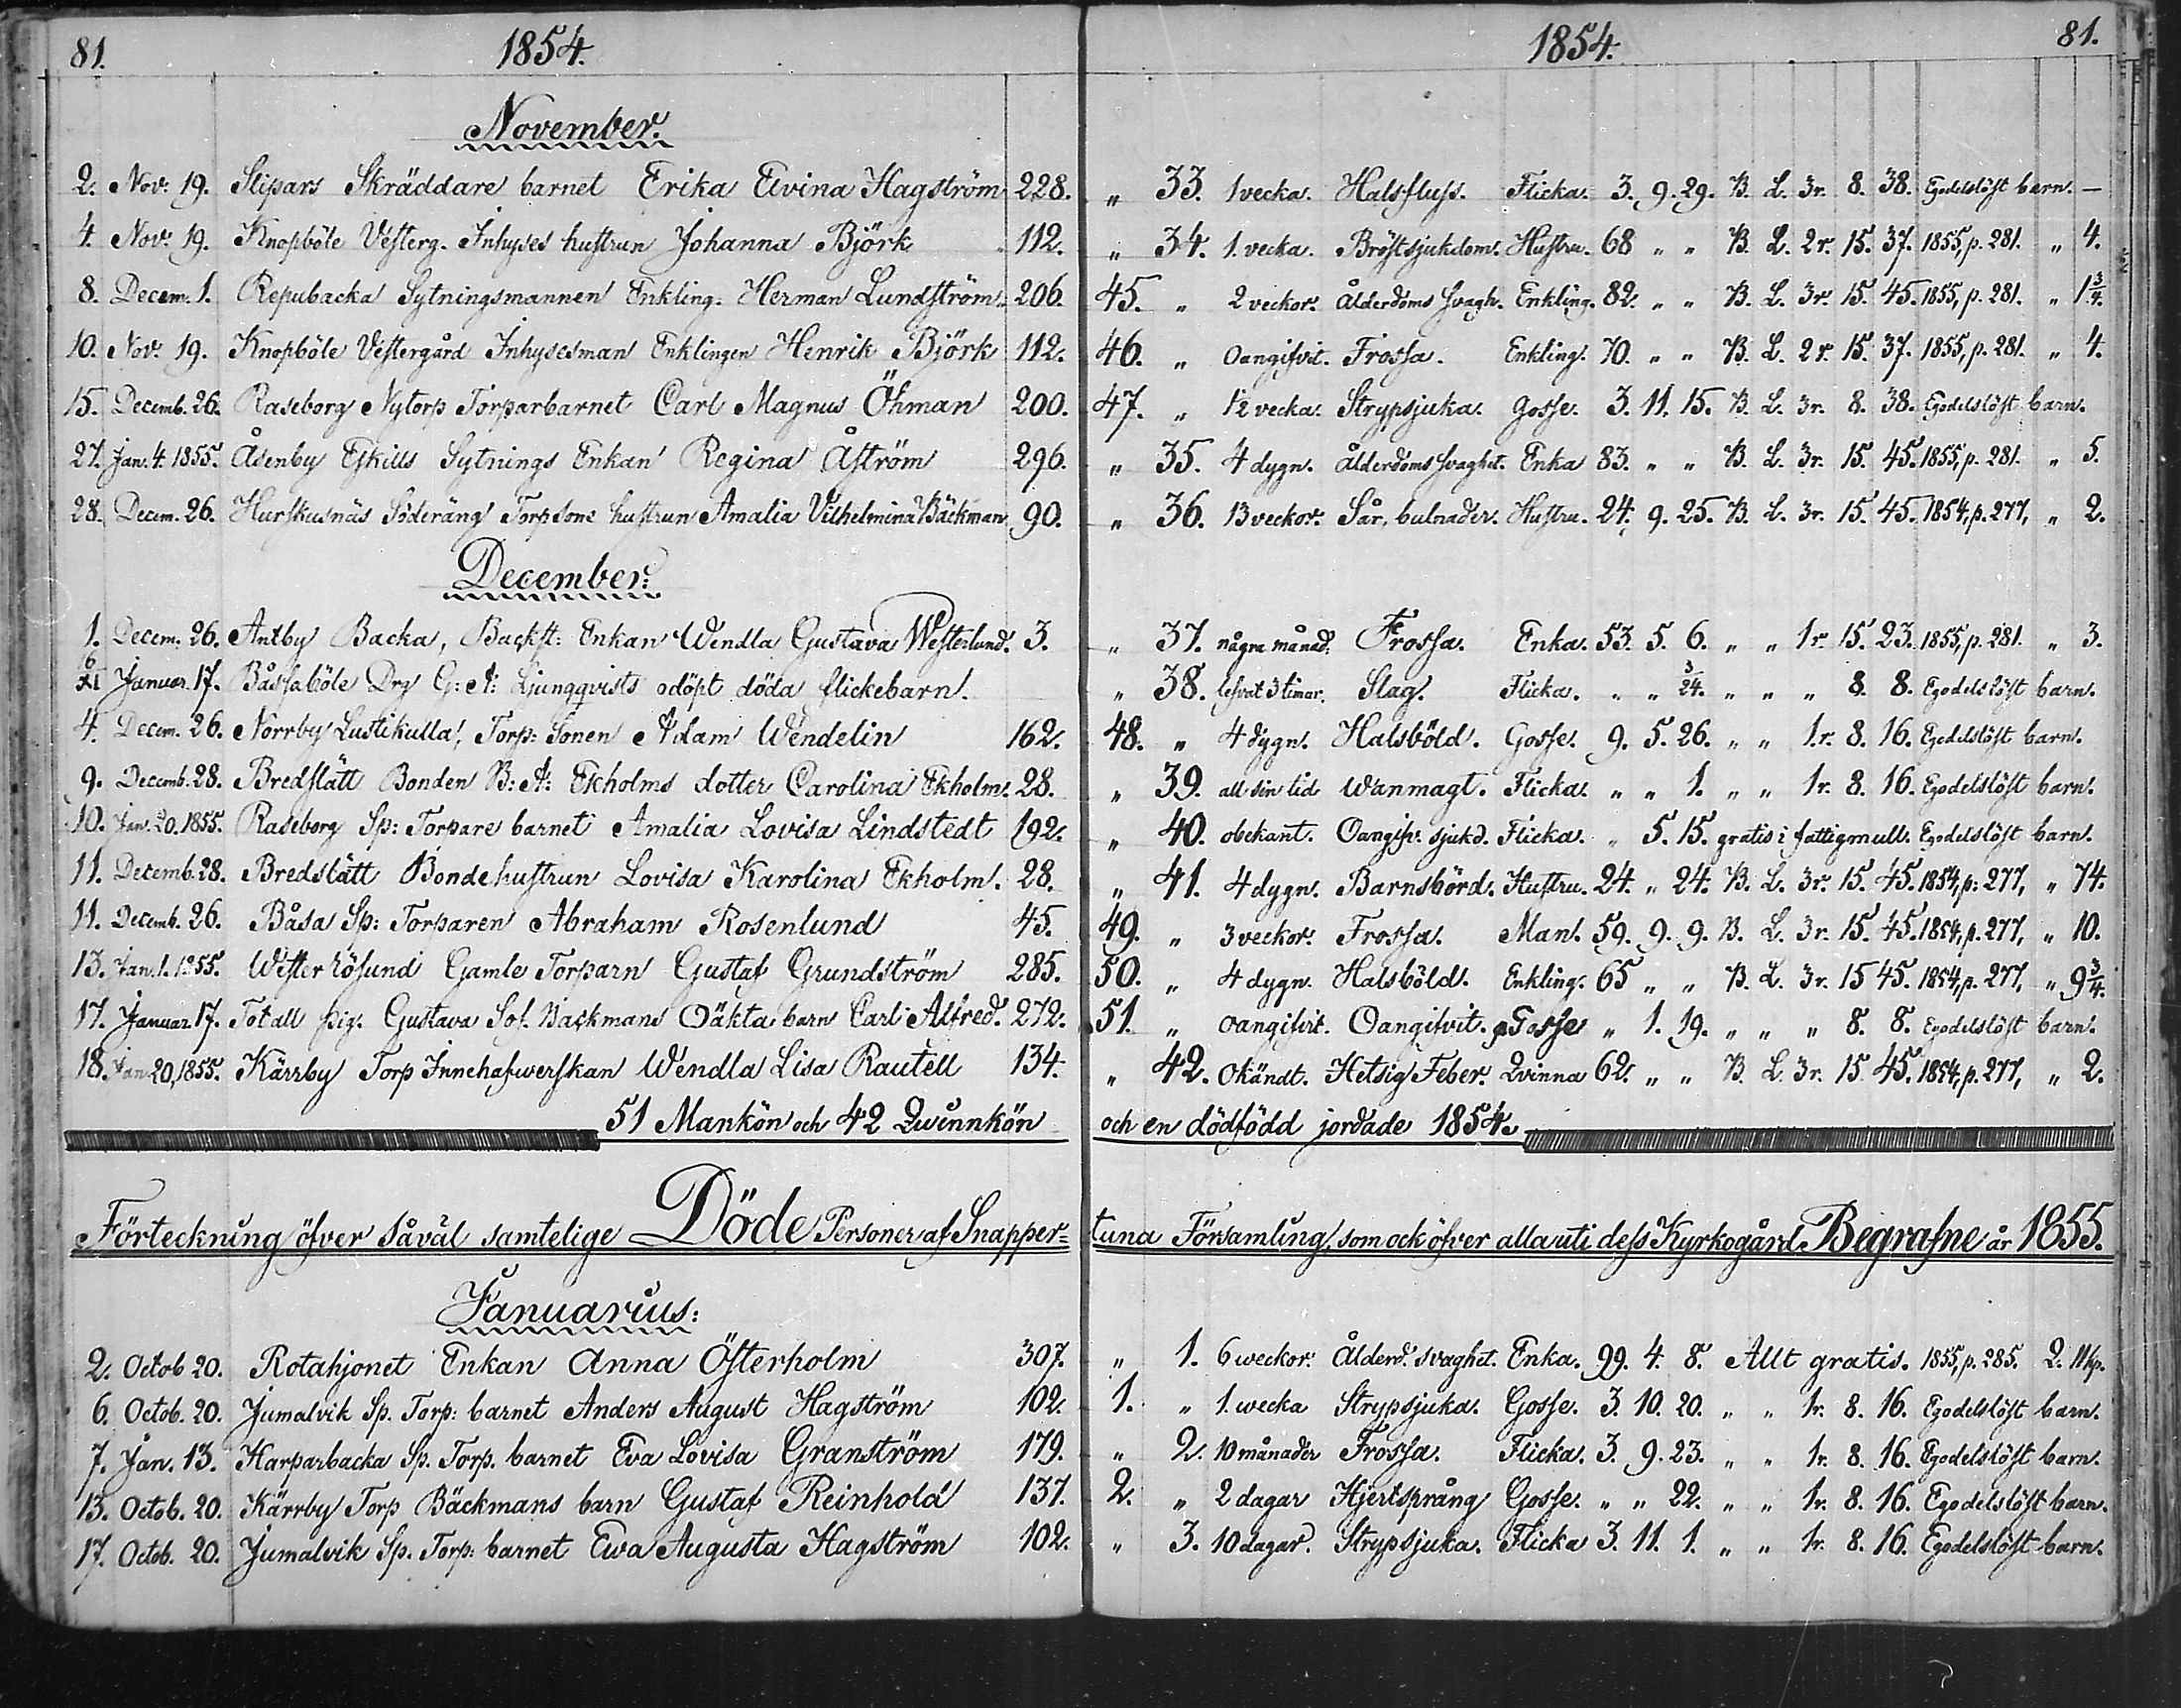 81. 1854. 1854. 81.
November.
2. Nov. 19. Slipars Skräddare barnet Erika Elvina Hagström 228. „ 33. 1 vecka. Halsfluss. Flicka. 3. 9. 29. B. L. 3r. 8. 38. Egodelslöst barn. —
4. Nov. 19. Knopböle Vesterg. Inhyses hustrun Johanna Björk „ 112. „ 34. 1. vecka. Bröstsjukdom. Hustru. 68 „ „ B. L. 2r. 15. 37. 1855, p. 281. „ 4.
8. Decem. 1. Repubacka Sytningsmannen Enkling. Herman Lundström „ 206. 45. „ 2 veckor. Ålderdoms svagh. Enkling. 82. „ „ B. L. 3r. 15. 45. 1855, p. 281. „ 1 3/4.
10. Nov. 19. Knopböle Vestergård Inhysesman Enklingen Henrik Björk 112. 46. „ Oangifvit. Frossa. Enkling. 70. „ „ B. L. 2r. 15. 37. 1855, p. 281. „ 4.
15. Decemb. 26. Raseborg Nytorp Torparbarnet Carl Magnus Öhman 200. 47. „ 1/2 vecka. Strypsjuka. Gosse. 3. 11. 15. B. L. 3r. 8. 38. Egodelslöst barn.
27. Jan. 4. 1855. Åsenby Eskills Sytnings Enkan Regina Åström 296. „ 35. 4 dygn. Ålderdoms svaghet. Enka 83. „ „ B. L. 3r. 15. 45. 1855, p. 281. „ 5.
28. Decem. 26. Hurskusnäs Söderäng Torpsone hustrun Amalia Vilhelmina Bäckman 90. „ 36. 13 veckor. Sår, bulnader. Hustru. 24. 9. 25. B. L. 3r. 15. 45. 1854, p. 277, „ 2.
December:
1. Decem. 26. Antby Backa, Backst: Enkan Wendla Gustava Westerlund. 3. „ 37. några månad. Frossa. Enka. 53. 5. 6. „ „ 1r. 15. 23. 1855, p. 281. „ 3.
6/XI Januar. 17. Båssaböle Drg G: A: Ljungqvists odöpt döda flickebarn. „ 38. lefvat 3 timar. Slag. Flicka. „ „ 3/24. „ „ „ 8. 8. Egodelslöst barn.
4. Decem. 26. Norrby Lustikulla, Torp: Sonen Adam Wendelin 162. 48. „ 4 dygn. Halsböld. Gosse. 9. 5. 26. „ „ 1.r. 8. 16. Egodelslöst barn.
9. Decemb. 28. Bredslätt Bonden B: A: Ekholms dotter Carolina Ekholm. 28. „ 39. all sin tid Wanmagt. Flicka. „ „ 1. „ „ 1r. 8. 16. Egodelslöst barn.
10. Jan. 20. 1855. Raseborg Sp: Torpare barnet Amalia Lovisa Lindstedt 192. „ 40. obekant. Oangifv. sjukd. Flicka. „ 5. 15. gratis i fattigmull. Egodelslöst barn.
11. Decemb. 28. Bredslätt Bondehustrun Lovisa Karolina Ekholm. 28. „ 41. 4 dygn. Barnsbörd. Hustru. 24. „ 24. B. L. 3r. 15. 45. 1854, p: 277, „ 74.
11. Decemb. 26. Båsa Sp: Torparen Abraham Rosenlund 45. 49. „ 3 veckor. Frossa. Man. 59. 9. 9. B. L. 3r. 15. 45. 1854, p. 277, „ 10.
13. Jan. 1. 1855. Wester Rösund Gamle Torparn Gustaf Grundström 285. 50. „ 4 dygn. Halsböld. Enkling. 65 „ „ B. L. 3r. 15 45. 1854, p. 277, „ 9 3/4.
17. Januar. 17. Totall pig. Gustava Sof. Backmans Oäkta barn Carl Alfred. 272. 51. „ oangifvit. Oangifvit. Gosse „ 1. 19. „ „ „ 8. 8. Egodelslöst barn.
18. Jan. 20, 1855. Kärrby Torp Innehafwerskan Wendla Lisa Rautell 134. „ 42. Okändt. Hetsig Feber. Qvinna 62. „ „ B. L. 3r. 15. 45. 1854, p. 277, „ 2.
51 Mankön och 42 Qwinnkön och en dödfödd jordade 1854.
Förteckning öfver såväl samtelige Döde Personer af Snapper= tuna Församling, som ock öfver alla uti dess Kyrkogård Begrafne år 1855.
Januarius:
2. Octob 20. Rotahjonet Enkan Anna Österholm 307. „ 1. 6 weckor. Ålderd. svaghet. Enka. 99. 4. 8. Allt gratis. 1855, p. 285. 2. 11 kp.
6. Octob. 20. Jumalvik Sp. Torp: barnet Anders August Hagström 102. 1. „ 1. wecka Strypsjuka. Gosse. 3. 10. 20. „ „ 1r. 8. 16. Egodelslöst barn.
7. Jan. 13. Harparbacka Sp. Torp. barnet Eva Lovisa Granström 179. „ 2. 10 månader Frossa. Flicka. 3. 9. 23. „ „ 1r. 8. 16. Egodelslöst barn.
13. Octob. 20. Kärrby Torp Bäckmans barn Gustaf Reinhold 137. 2. „ 2 dagar Hjertsprång Gosse. „ „ 22. „ „ 1r. 8. 16. Egodelslöst barn.
17. Octob. 20. Jumalvik Sp. Torp: barnet Ewa Augusta Hagström 102. „ 3. 10 dagar. Strypsjuka. Flicka 3. 11. 1. „ „ 1r. 8. 16. Egodelslöst barn.